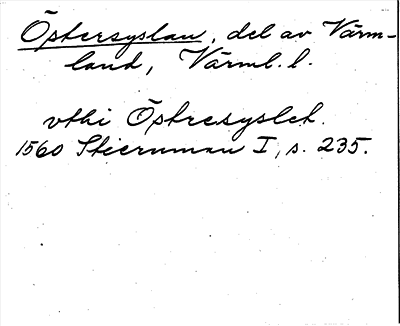 Östersyslan, del av Värm-
land, Värml. l.
vthi Östresyslet.
1560 Stiernman I, s. 235.